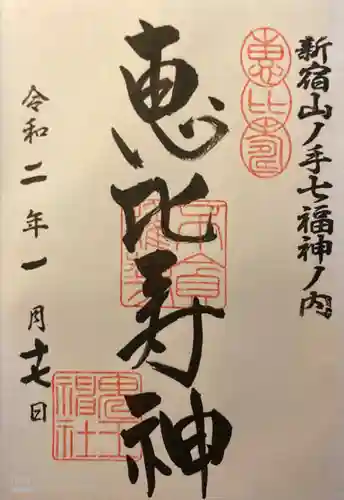 新宿山ノ手七福神ノ内
恵比寿
恵比寿神
鬼王
神社
令和二年一月十七日